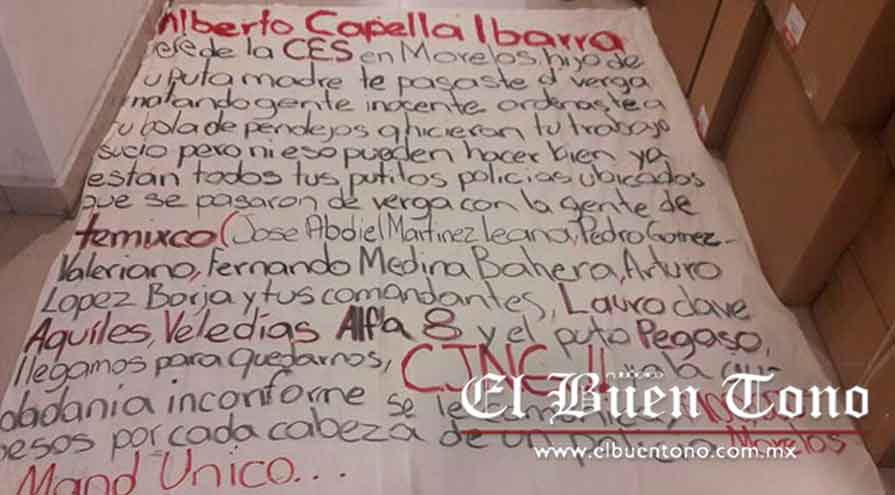 Alberto Capella Ibarra
efe de la CES en Morelos, hijo de
u puta madre te pasaste d' verga
matando gente inocente ordenaste a
tu bola de pendejos q hicieran tu trabajo
sucio pero ni eso pueden hacer bien ya
estan todos tus putitos policias ubicados
que se pasaron de verga con la gente de
temixco (Jose Abdiel Martinez Leana, Pedro Gomez
Valeriano, Fernando Medina Bahera, Arturo
Lopez Borja y tus comandantes, Lauro clave
Aquiles, Veledias Alfa 8 y el puto Pegaso,
llegamos para quedarnos, CJNG a la ciu
dadania inconforme se le
pesos por cada cabeza de un policia Morelos
Mand Unico...
PERIODICO
El Buen Tono
www.elbuentono.com.mx